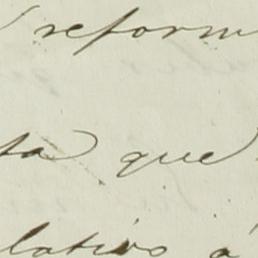 reform
ta que
lativo á